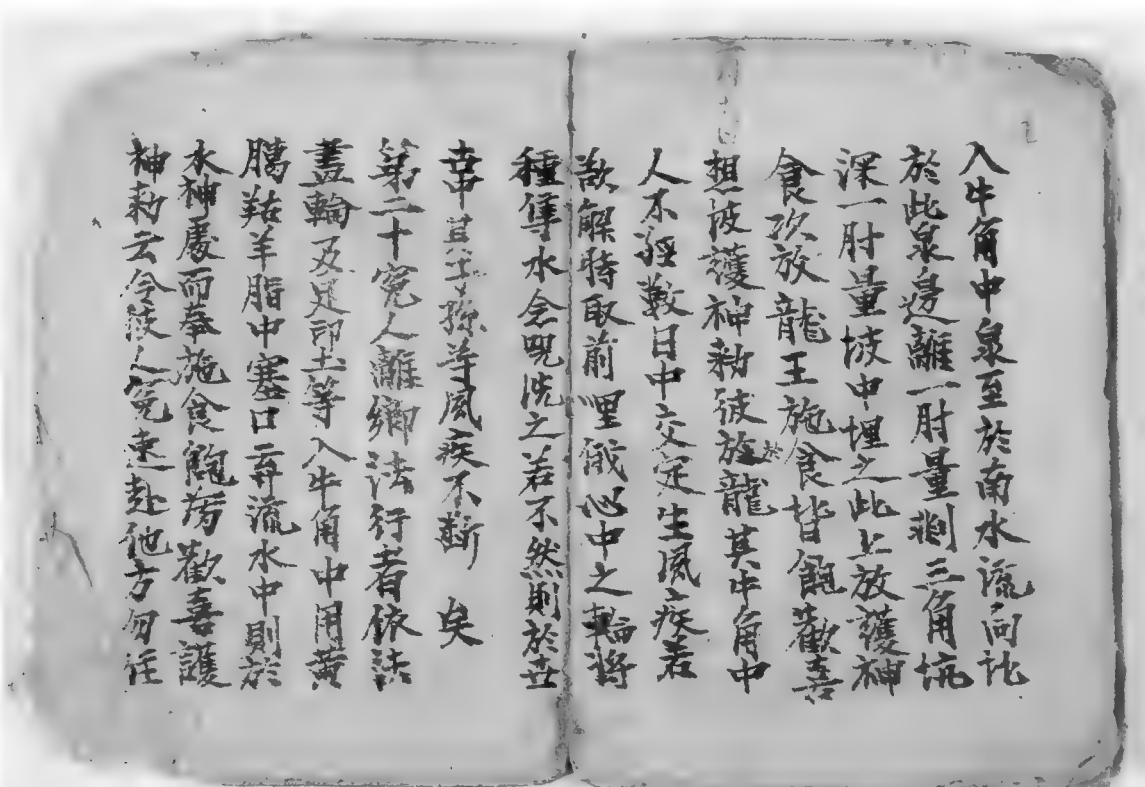 入牛角中泉至於南水流向訖
於此泉邊離一肘量剜三角坑
深一肘量彼中埋之此上放護神
食次放龍王施食皆飽歡喜
想彼護神勑彼於龍其牛角中
人不經數日中交定生風疾若
欲解時取前埋俄心中之輪將
種種水念呪洗之若不然則於
世中 孫等風疾不斷 矣
第二十冤人離鄉法行者依法
蓋輪及足印土等入牛角中用黃
臈羖羊脂中塞口弃流水中則於
水神處而奉施食飽滿歡喜護
神勑云令彼人冤速赴他方勿住